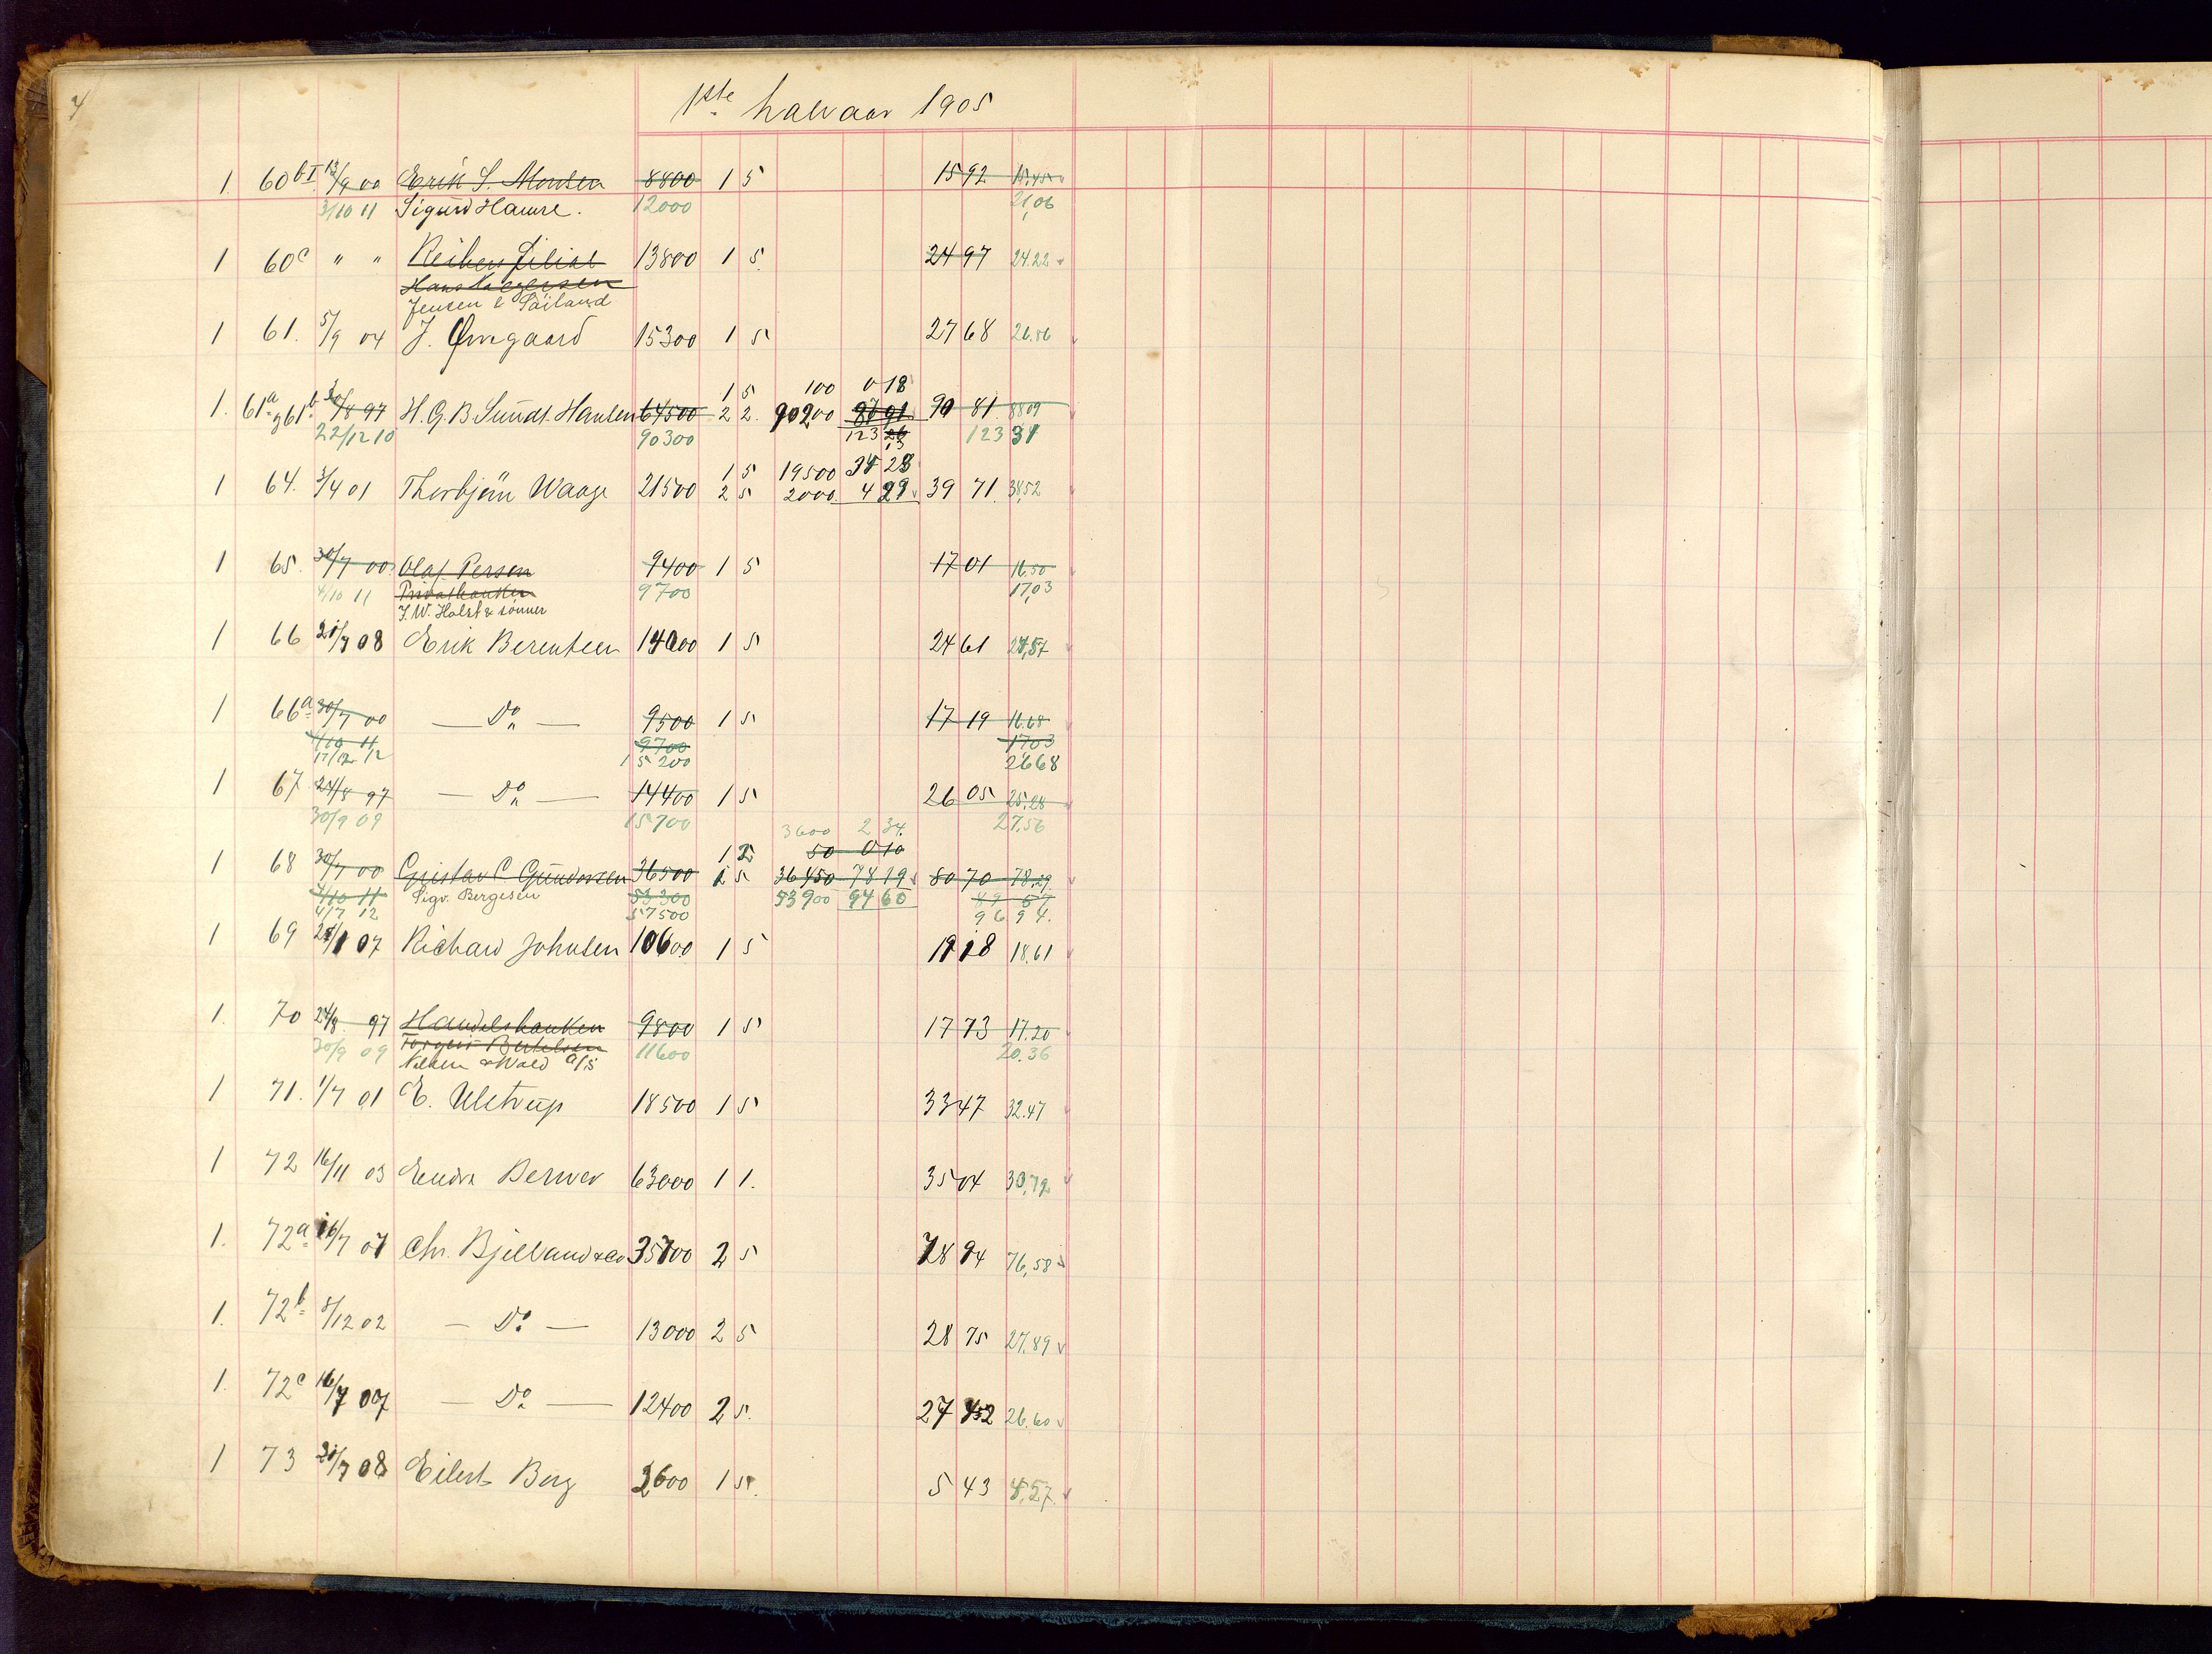 4
1ste halvaar 1905
1. 60 bI 13/9 00 Erik S. Monsen 8800 1 5 15 92 15,45
3/10 11 Sigurd Hamre. 12000 21,06
1 60c " " Reibers Filial 13800 1 5. 24 97 24.22
Jensen & Söiland
1 61. 5/9 04 J. Øvregaard 15300 1 5 27 68 26.86
1 5 100 0 18
1. 61a & 61b 30/8 97 H. G. B. Sundt. Hansen 64500 2 2. 90200 90 81. 88 09
22/12 10 90300 123 123 31
1 5 19500 34 28
1 64. 3/4 01 Thorbjörn Waage 21500 2 5 2000. 4 29 39 71. 38,52
1 65. 30/7 00. Olaf Person 9400 1 5 17 01 16,50
4/10 11 Privatbanken 9700 17,03
J. W. Holst & sönner
1 66 21/7 08 Erik Berentsen 14000 1 5 24 61 24,57
1 66a 30/7 00 Do 9500 1 5 17 19 16.68
4/10 11 9700 17,03
17/12 12 15200 26,68
1 67 24/8 97 Do 14400 1 5 26 05 25,28
30/9 09 15700 27,56
3600 2 34.
1 2 50 0 10
1 68 30/7 00 Gustav C Gundersen 36500 1 5 36450 78 19 80 70 78,29
4/10 11 Sigv. Bergesen 53300 53900 94 60 89 69
4/7 12 57500 96 94.
1 69 25/1 07 Richard Johnsen 10600 1 5 19 18 18.61
1. 70 24/8 97 Handelsbanken 9800 1 5 17 73 17.20
30/9 09 Torgeir Bertelsen 11600 20.36
Nielsen & Wold A/S
1 71. 1/7 01 E. Ulstrup 18500 1 5 33 47 32.47
1 72 16/11 03 Endre Berner 63000 1 1. 35 04 30,72
1. 72a 16/7 07 Chr. Bjelland & Co 35700 2 5 78 94 76,58
1. 72b 8/12 02 Do 13000 2 5 28 75 27,89
1. 72c 16/7 07 Do 12400 2 5. 27 42 26.60
1 73 21/7 08 Eilert Berg 2600 1 5. 5 43 4,57